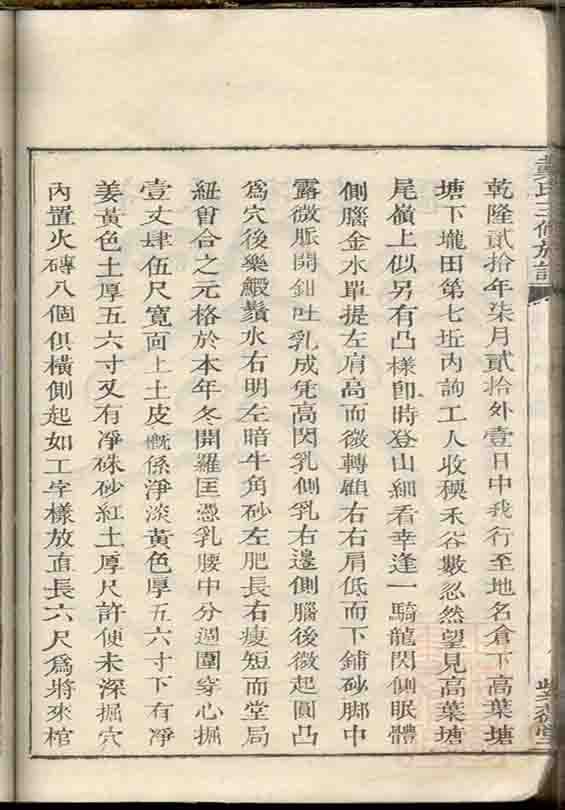 乾隆貳拾年柒月貳拾外壹日中我行至地名倉下高葉塘
塘下壠田第七坵內詢工人收穫禾谷數忽然望見高葉塘
尾嶺上似另有凸樣卽時登山細看幸逢一騎龍閃側眠體
側腦金水單提左肩高而微轉顧右右肩低而下鋪砂脚中
露微脈開鉗吐乳成凭高閃乳側乳右邊側腦後微起圓凸
爲穴後樂鰕鬚水右明左暗牛角砂左肥長右瘦短而堂局
紐曾合之元格於本年冬開羅匡憑乳腰中分週圍穿心掘
壹丈肆伍尺寬面上土皮概係淨淡黃色厚五六寸下有淨
姜黃色土厚五六寸又有淨硃砂紅土厚尺許便未深掘穴
內置火磚八個俱橫側起如工字樣放直長六尺爲將來棺
氏三修族譜